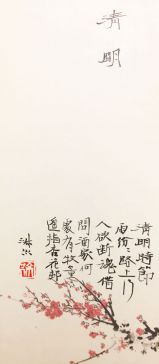 清明
清明時節
雨紛々路上行
人欲断魂借
問酒家何
處有牧童
遥指杏花邨